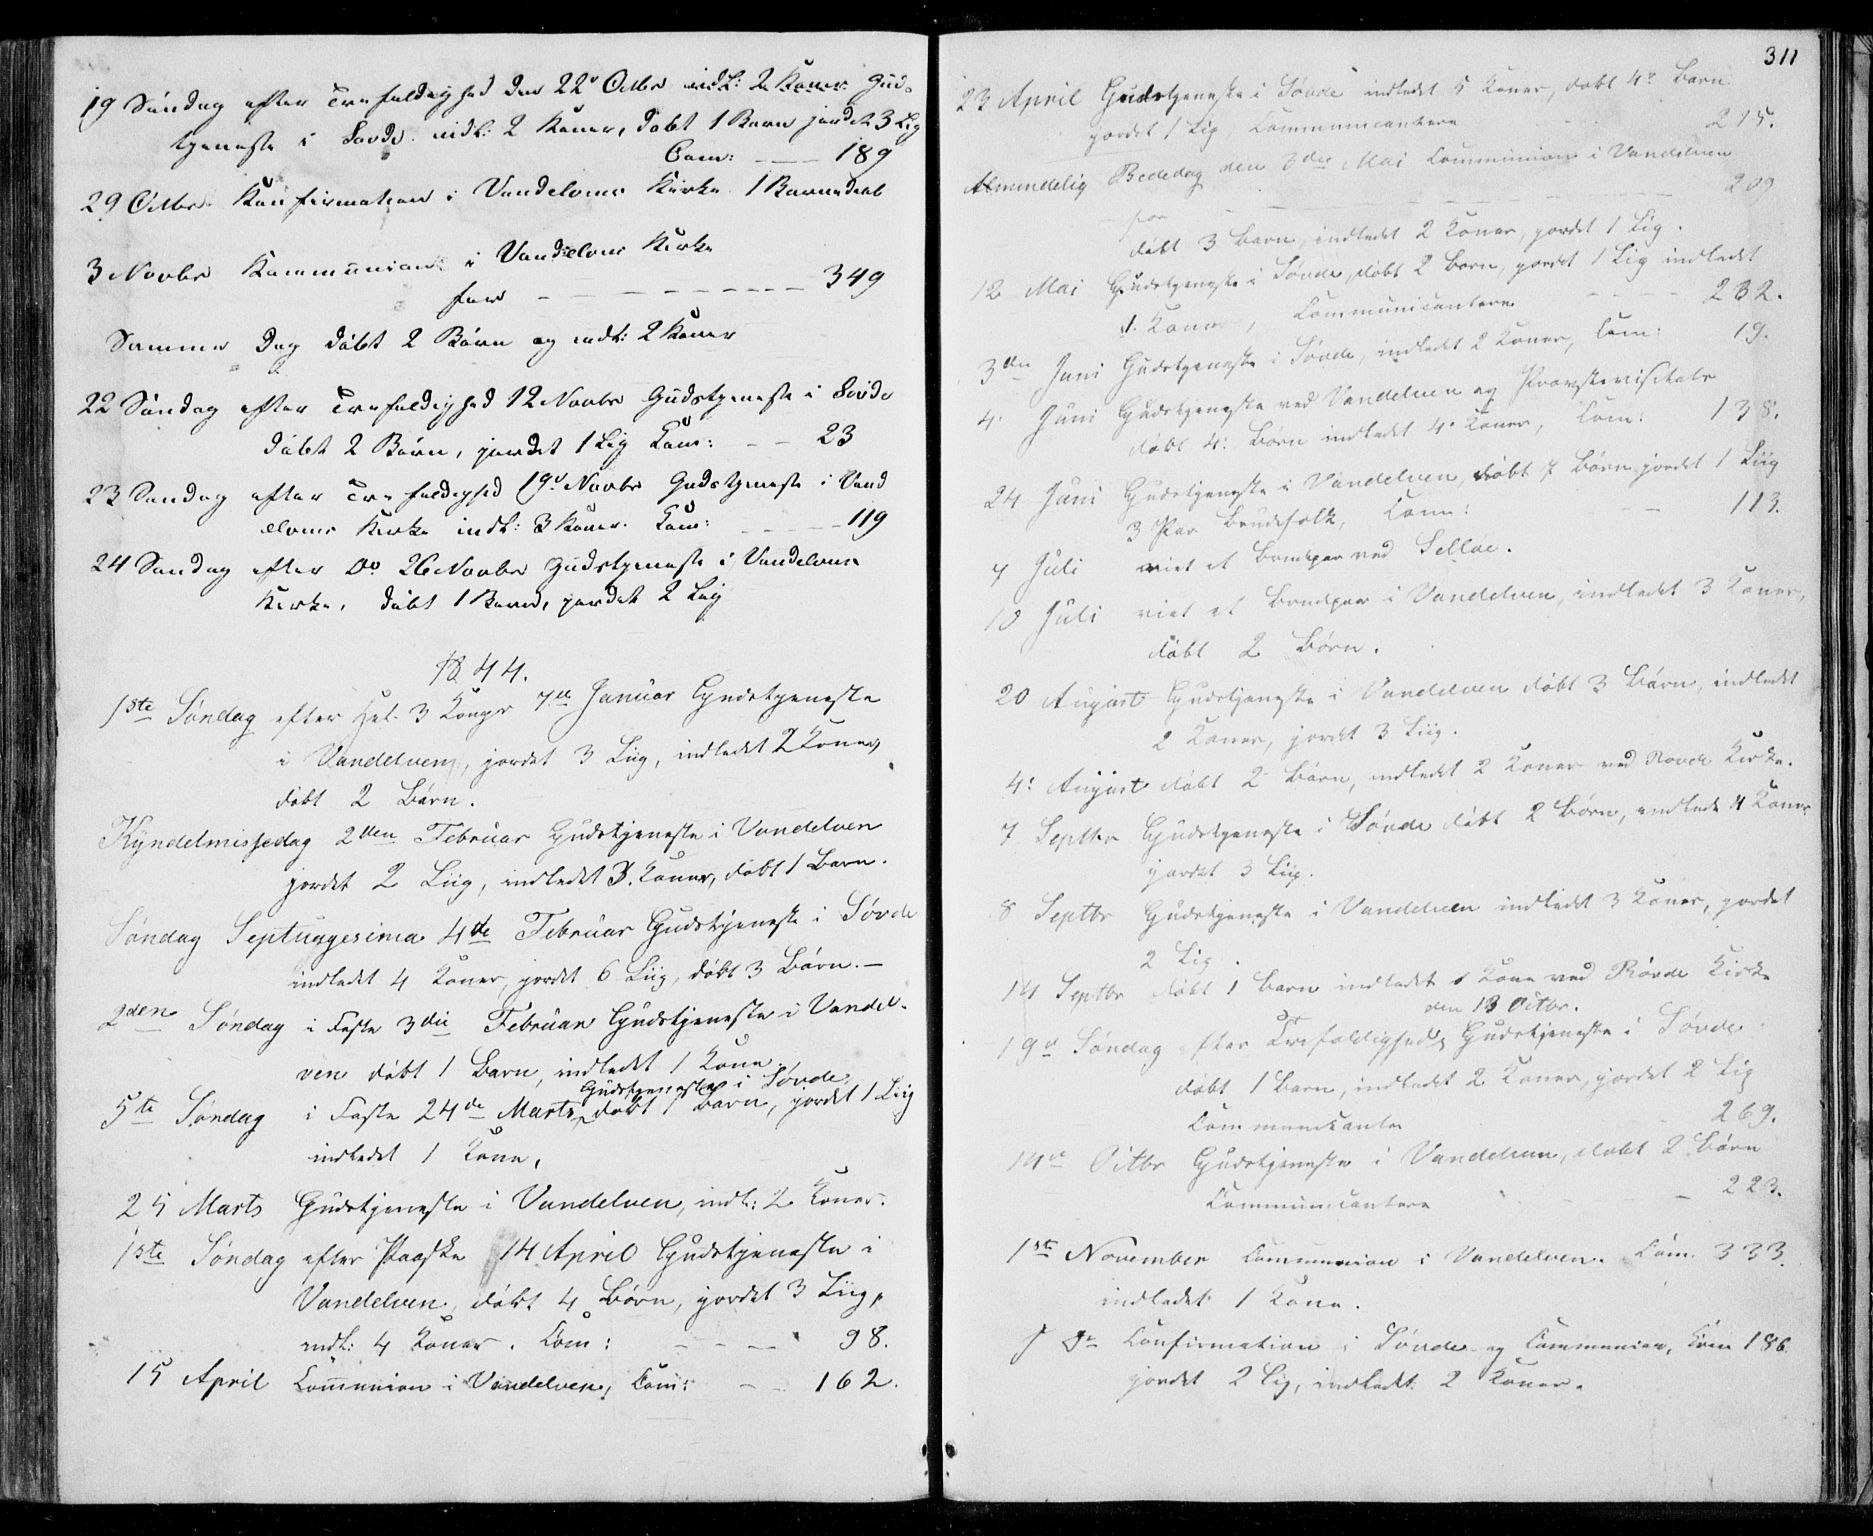 19 Søndag efter Trefoldighed den 22de Octbr indl: 2 Koner Guds-
tjeneste i Sovde indl: 2 Koner, døbt 1 Barn jordet 3 Lig
Com: 189
29 Octbr Konfirmation i Vandelvens Kirke 1 Barnedaab
3 Novbr Kommunion i Vandelvens Kirke
for 349
Samme Dag døbt 2 Børn og indl: 2 Koner
22 Søndag efter Trefoldighed 12 Novbr Gudstjeneste i Sovde
døbt 2 Børn, jordet 1 Lig Com: 23
23 Søndag efter Trefoldighed 19de Novbr Gudstjeneste i Vand
elvens Kirke indl: 3 Koner. Com: 119
24 Søndag efter Do 26 Novbr Gudstjeneste i Vandelvens
Kirke, døbt 1 Barn, jordet 2 Lig
1844.
1ste Søndag efter Hel. 3 Konger 7de Januar Gudstjeneste
i Vandelven, jordet 3 Liig, indledet 2 Koner,
døbt 2 Børn.
Kyndelmissedag 2den Februar Gudstjeneste i Vandelven
jordet 2 Liig, indledet 3. Koner, døbt 1 Barn.
Søndag Septuagesima 4de Februar Gudstjeneste i Søvde
indledet 4 Koner, jordet 6 Liig, døbt 3 Børn.
2den Søndag i Faste 3die Februar Gudstjeneste i Vandel-
ven døbt 1 Barn, indledet 1 Kone.
Gudstjeneste i Søvde,
5te Søndag i Faste 24de Marts, døbt 1 Barn, jordet 1 Liig
indledet 1 Kone,
25 Marts Gudstjeneste i Vandelven, indl: 2 Koner.
1ste Søndag efter Paaske 14 April Gudstjeneste i
Vandelven, døbt 4 Børn, jordet 3 Liig,
indl: 4 Koner. Com: 98.
15 April Communion i Vandelven, Com: 162.
311
23 April Gudstjeneste i Søvde indledet 5 Koner, døbt 4 Børn
jordet 1 Lig, Communicantere 275.
Almindelig Bededag den 3die Mai Communion i Vandelven
for 209
døbt 3 Børn, indledet 2 Koner, jordet 1 Lig.
12 Mai Gudstjeneste i Søvde, døbt 2 Børn, jordet 1 Lig indledet
1. Kone, Communicantere 232.
3die Juni Gudstjeneste i Søvde, indledet 2 Koner, Com: 19.
4. Juni Gudstjeneste ved Vandelven og Provstevisitats
døbt 4: Børn indledet 4. Koner, Com: 138.
24 Juni Gudstjeneste i Vandelven, døbt 7 Børn jordet 1 Liig
3 Par Brudefolk, Com: 113.
7 Juli viet et Brudepar ved Selløe.
10 Juli viet et Brudepar i Vandelven, indledet 3 Koner,
døbt 2 Børn.
20 August Gudstjeneste i Vandelven døbt 3 Børn, indledet
2 Koner, jordet 3 Liig.
4: August døbt 2 Børn, indledet 2 Koner ved Rovde Kirke.
7 Septbr Gudstjeneste i Søvde døbt 2 Børn, indledt 4 Koner
jordet 3 Liig.
8 Septbr Gudstjeneste i Vandelven indledet 3 Koner, jordet
2 Lig.
14 Septbr døbt 1 Barn indledet 1 Kone ved Røvde Kirke
den 13 Octbr.
19de Søndag efter Trefoldighed, Gudstjeneste i Søvde
døbt 1 Barn, indledet 2 Koner, jordet 2 Lig
Communicanter 269.
14de Octbr Gudstjeneste i Vandelven, døbt 2 Børn
Communicantere 223.
1ste November Communion i Vandelven. Com. 333.
indledet 1 Kone.
Confirmation i Søvde og Communion, Com 186
jordet 2 Lig, indledet 2 Koner.